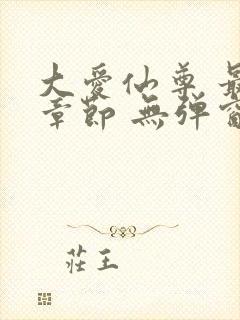 大愛仙尊 最
章節 無弹窗
莊王